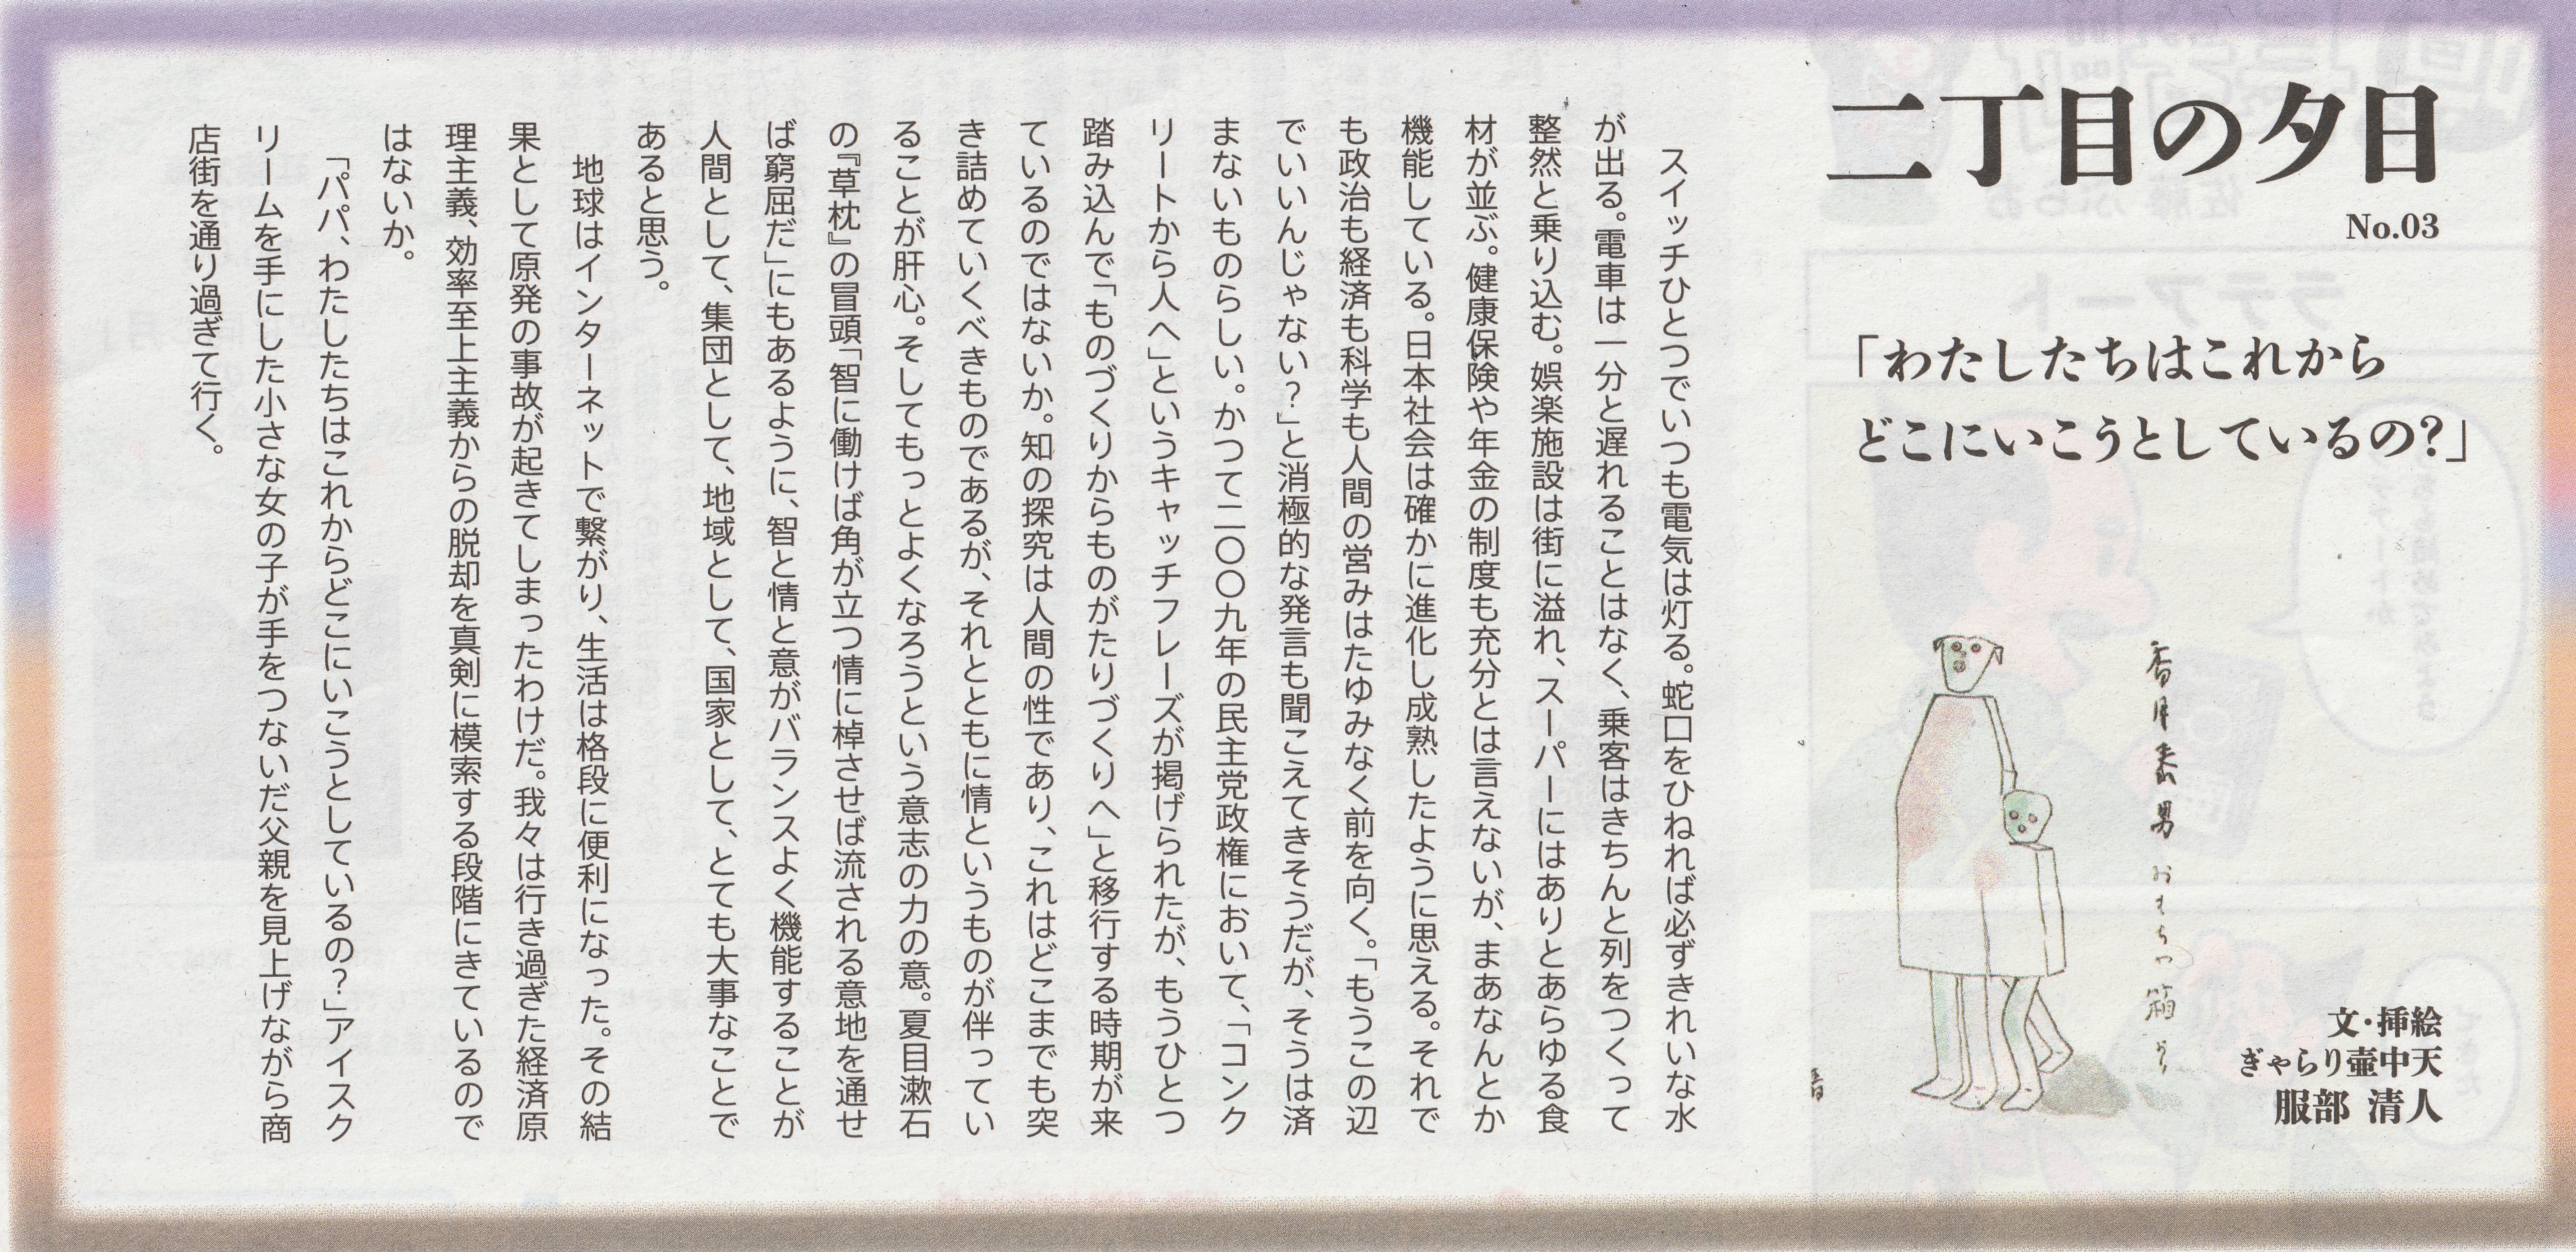 二丁目の夕日
No.03
「わたしたちはこれから
どこにいこうとしているの?」
香月泰男 おもちゃ箱より
文・挿絵
ぎゃらり壷中天
服部 清人
スイッチひとつでいつも電気は灯る。蛇口をひねれば必ずきれいな水
が出る。電車は一分と遅れることはなく、乗客はきちんと列をつくって
整然と乗り込む。娯楽施設は街に溢れ、スーパーにはありとあらゆる食
材が並ぶ。健康保険や年金の制度も充分とは言えないが、まあなんとか
機能している。日本社会は確かに進化し成熟したように思える。それで
も政治も経済も科学も人間の営みはたゆみなく前を向く。「もうこの辺
でいいんじゃない?」と消極的な発言も聞こえてきそうだが、そうは済
まないものらしい。かつて二〇〇九年の民主党政権において、「コンク
リートから人へ」というキャッチフレーズが掲げられたが、もうひとつ
踏み込んで「ものづくりからものがたりづくりへ」と移行する時期が来
ているのではないか。知の探究は人間の性であり、これはどこまでも突
き詰めていくべきものであるが、それとともに情というものが伴ってい
ることが肝心。そしてもっとよくなろうという意志の力の意。夏目漱石
の『草枕』の冒頭「智に働けば角が立つ情に棹させば流される意地を通せ
ば窮屈だ」にもあるように、智と情と意がバランスよく機能することが
人間として、集団として、地域として、国家として、とても大事なことで
あると思う。
地球はインターネットで繋がり、生活は格段に便利になった。その結
果として原発の事故が起きてしまったわけだ。我々は行き過ぎた経済原
理主義、効率至上主義からの脱却を真剣に模索する段階にきているので
はないか。
「パパ、わたしたちはこれからどこにいこうとしているの?」アイスク
リームを手にした小さな女の子が手をつないだ父親を見上げながら商
店街を通り過ぎて行く。